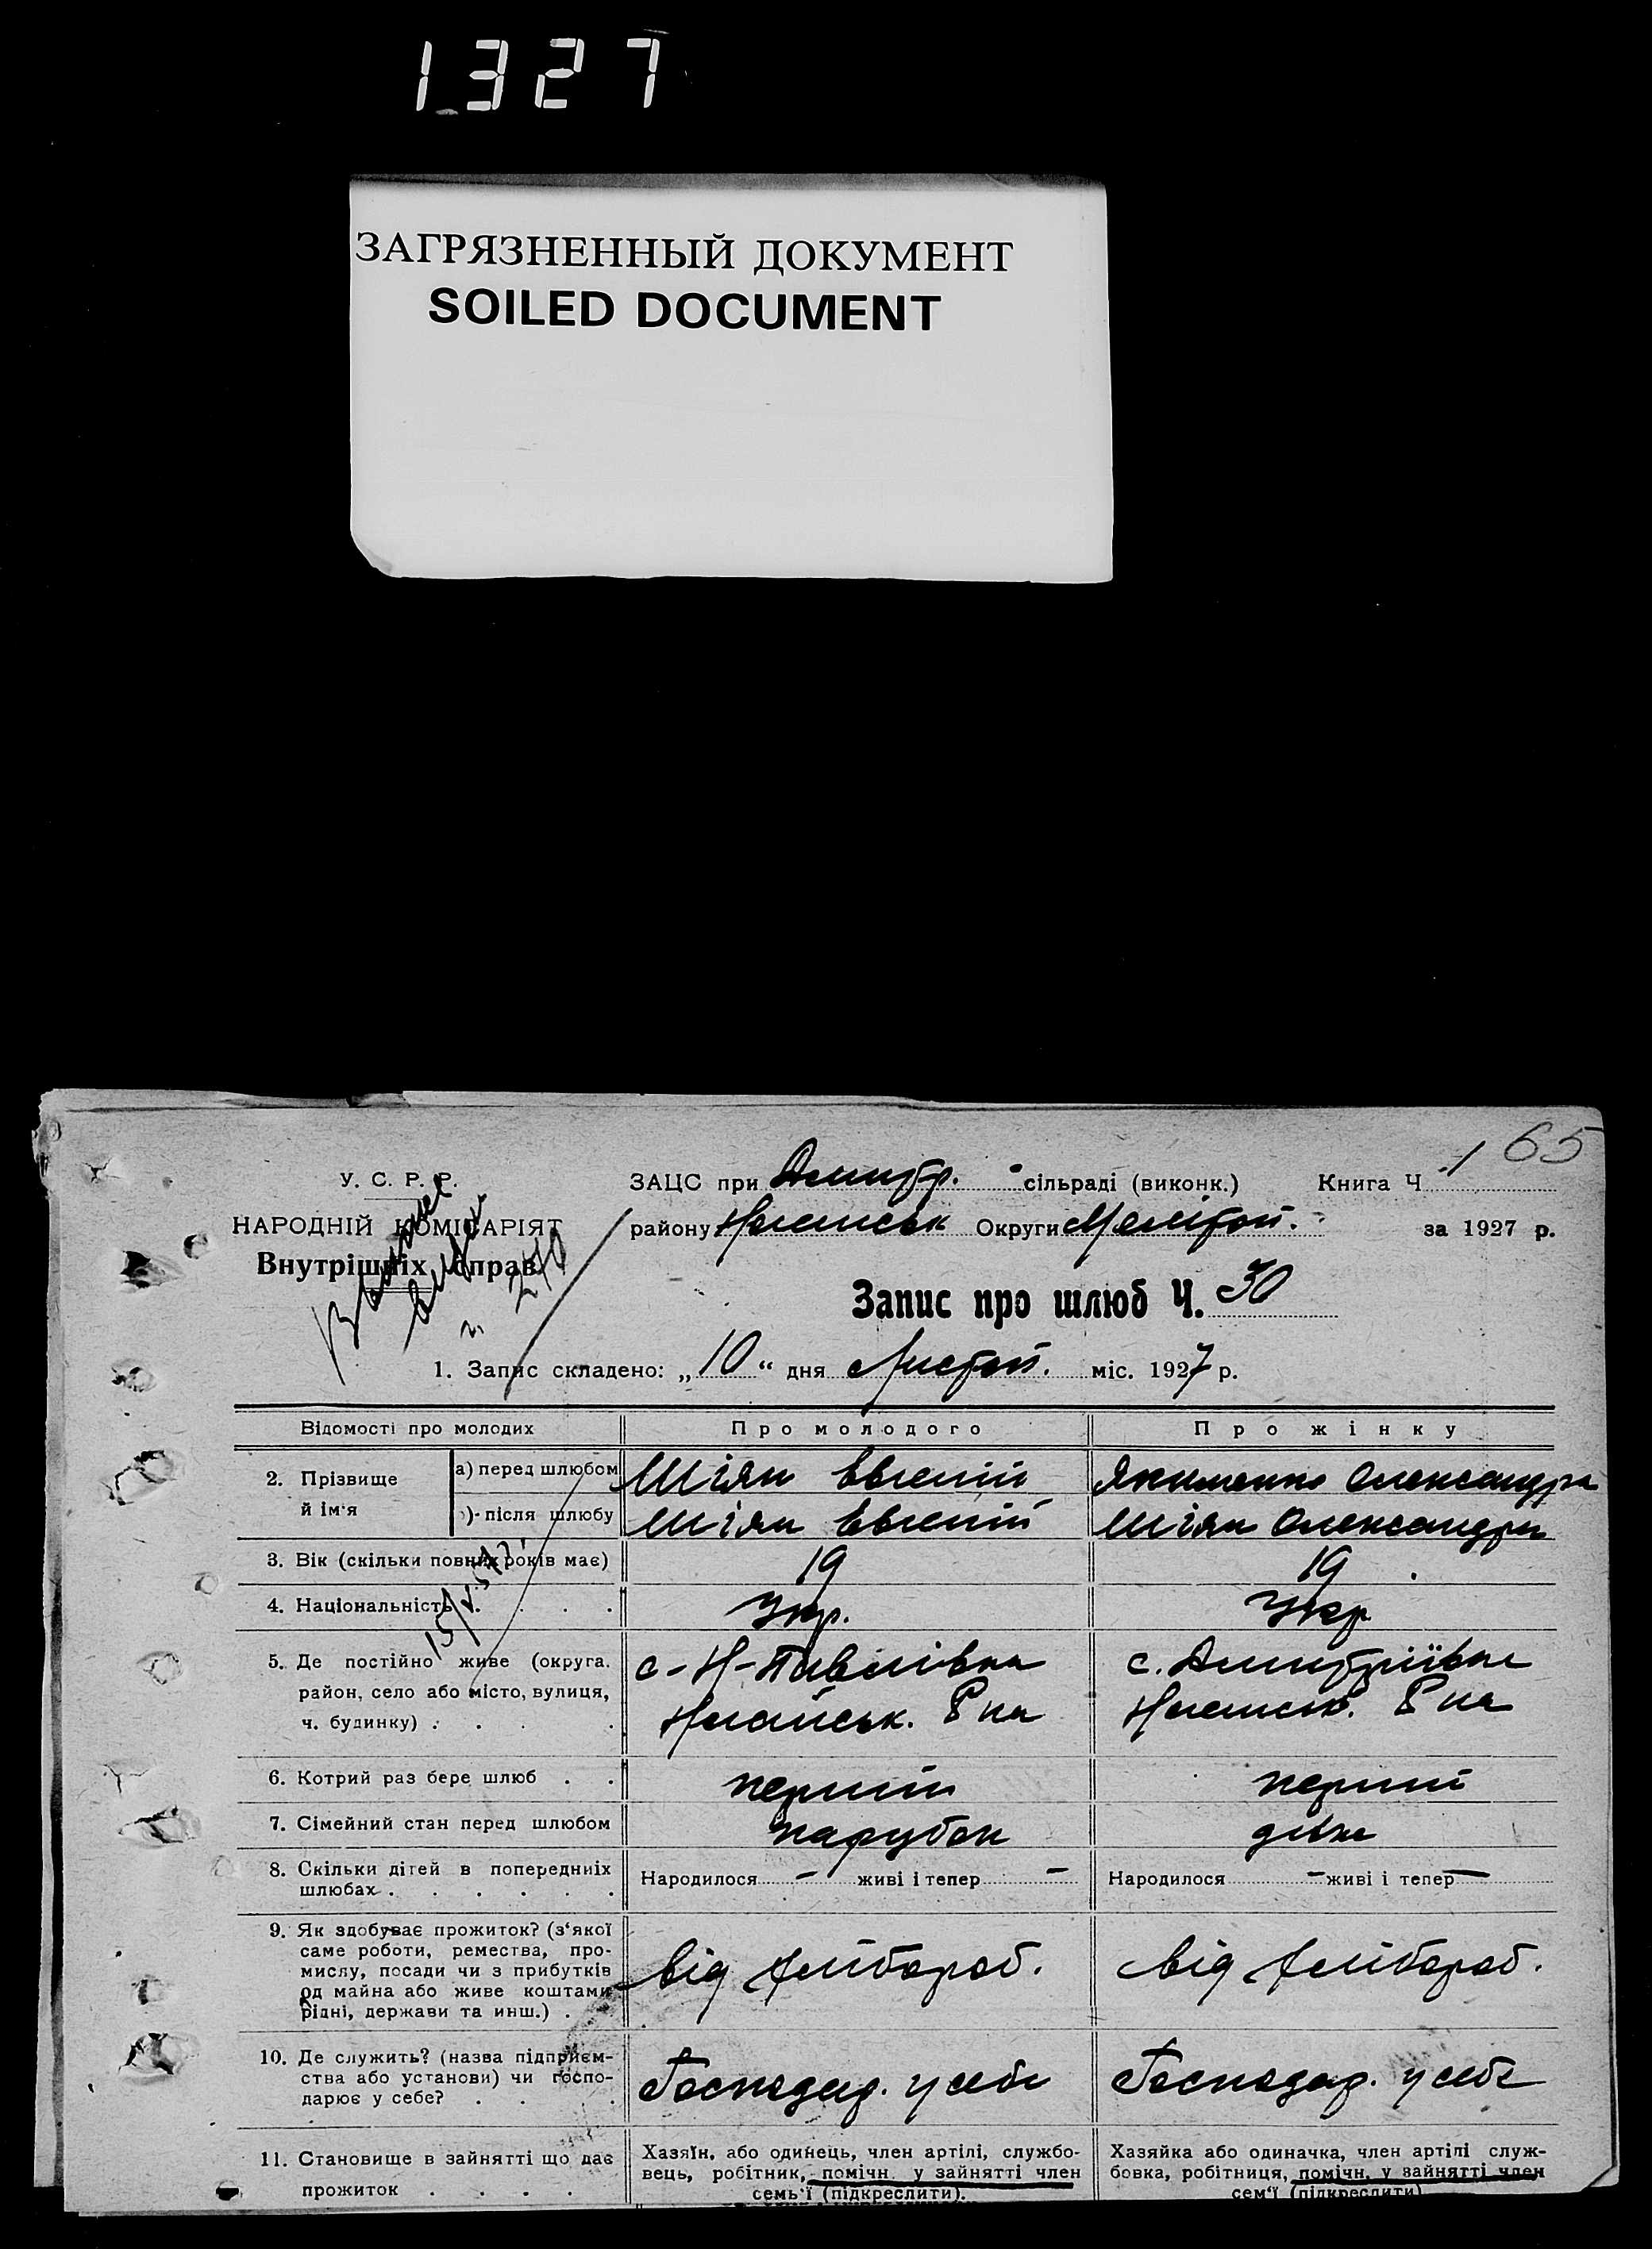 1327
ЗАГРЯЗНЕННЫЙ ДОКУМЕНТ
SOILED DOCUMENT
1 65
У. С. Р. Р.
НАРОДНІЙ КОМІСАРІЯТ
Внутрішніх справ.
ЗАЦС при Дмитр. сільраді (виконк.) Книга Ч. 1
району Ногайськ Округи Мелітоп. за 1927 р.
Запис про шлюб Ч. 30
1. Запис складено: „10“ дня Листоп. міс. 1927 р.
Відомості про молодих Про молодого Про жінку
2. Прізвище й ім'я
а) перед шлюбом Шіян Євгеній Якименко Олександра
)- після шлюбу Шіян Євгеній Шіян Олександра
3. Вік (скільки повних років має) 19 19
4. Національність Укр. Укр
5. Де постійно живе (округа, район, село або місто, вулиця, ч. будинку)
с-Н-Павлівка с. Дмитріївка
Ногайськ. Р на Ногайськ. Р на
6. Котрий раз бере шлюб перший перший
7. Сімейний стан перед шлюбом парубок дівка
8. Скільки дітей в попередниіх шлюбах
Народилося - живі і тепер - Народилося - живі і тепер -
9. Як здобуває прожиток? (з'якої
саме роботи, ремества, про-
мислу, посади чи з прибутків
од майна або живе коштами
рідні, держави та инш.)
від хлібороб. від хлібороб.
10. Де служить? (назва підприєм-
ства або установи) чи госпо-
дарює у себе?
Господар. у себе Господар. у себе
11. Становище в зайнятті що дає
прожиток
Хазяїн, або одинець, член артілі, службо-
вець, робітник, помічн. у зайнятті член
семь'ї (підкреслити).
Хазяйка або одиначка, член артілі служ-
бовка, робітниця, помічн. у зайнятті член
сем'ї (підкреслити)